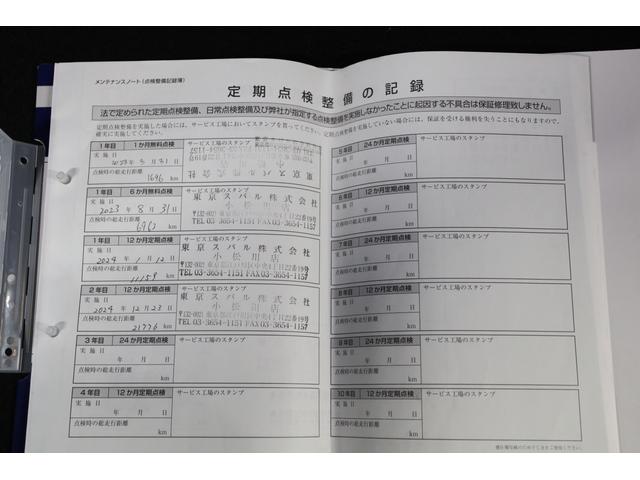 メンテナンスノート(点検整備記録簿)
定期点検整備の記録
法で定められた定期点検整備、日常点検整備及び弊社が指定する点検整備を実施しなかったことに起因する不具合は保証修理致しません。
定期点検整備を実施した場合には、サービス工場においてスタンプを貰ってください。定期点検整備を実施していない場合には、保証を受ける権利を失うこともになりますので、
確実に実施してください。
1年目 1か月無料点検
サービス工場のスタンプ
実施日
2023年3月31日
点検時の総走行距離
1696 km
東京スバル株式会社
1年目 6か月無料点検
サービス工場のスタンプ
実施日
2023年8月31日
点検時の総走行距離
6963 km
東京スバル株式会社
小松川店
〒132-0021 東京都江戸川区中央4丁目22番19号
TEL 03-3654-1151 FAX 03-3654-1157
1年目 12か月定期点検
サービス工場のスタンプ
実施日
2024年1月12日
点検時の総走行距離
11159 km
東京スバル株式会社
小松川店
〒132-0021 東京都江戸川区中央4丁目22番19号
TEL 03-3654-1151 FAX 03-3654-1157
2年目 12か月定期点検
サービス工場のスタンプ
実施日
2024年12月23日
点検時の総走行距離
21776 km
東京スバル株式会社
小松川店
〒132-0021 東京都江戸川区中央4丁目22番19号
TEL 03-3654-1151 FAX 03-3654-1157
3年目 24か月定期点検
サービス工場のスタンプ
実施日
年 月 日
点検時の総走行距離
km
4年目 12か月定期点検
サービス工場のスタンプ
実施日
年 月 日
点検時の総走行距離
km
5年目 24か月定期点検
サービス工場のスタンプ
実施日
年 月 日
点検時の総走行距離
km
6年目 12か月定期点検
サービス工場のスタンプ
実施日
年 月 日
点検時の総走行距離
km
7年目 24か月定期点検
サービス工場のスタンプ
実施日
年 月 日
点検時の総走行距離
km
8年目 12か月定期点検
サービス工場のスタンプ
実施日
年 月 日
点検時の総走行距離
km
9年目 24か月定期点検
サービス工場のスタンプ
実施日
年 月 日
点検時の総走行距離
km
10年目 12か月定期点検
サービス工場のスタンプ
実施日
年 月 日
点検時の総走行距離
km